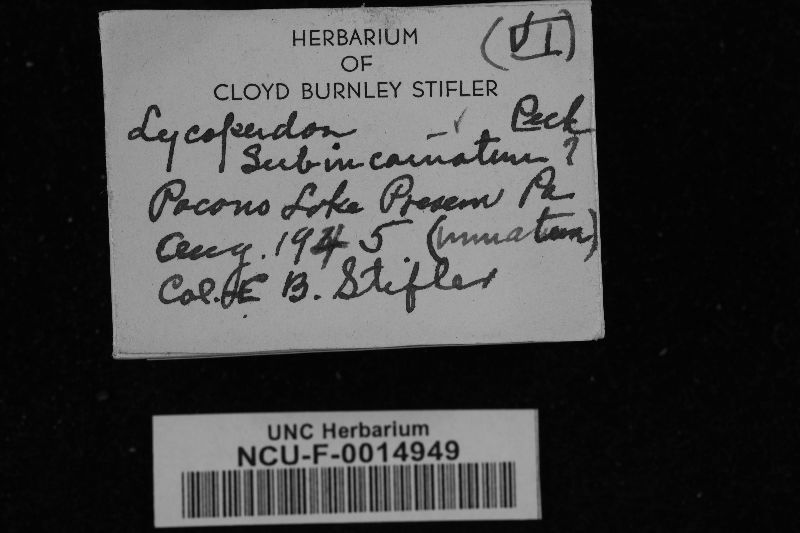 (VI)
HERBARIUM
OF
CLOYD BURNLEY STIFLER
Lycoperdon – ✓ Peck
Subincarnatum ?
Pocono Lake Preserv Pa
Aug. 1945 (immature)
Col. E B. Stifler
UNC Herbarium
NCU-F-0014949